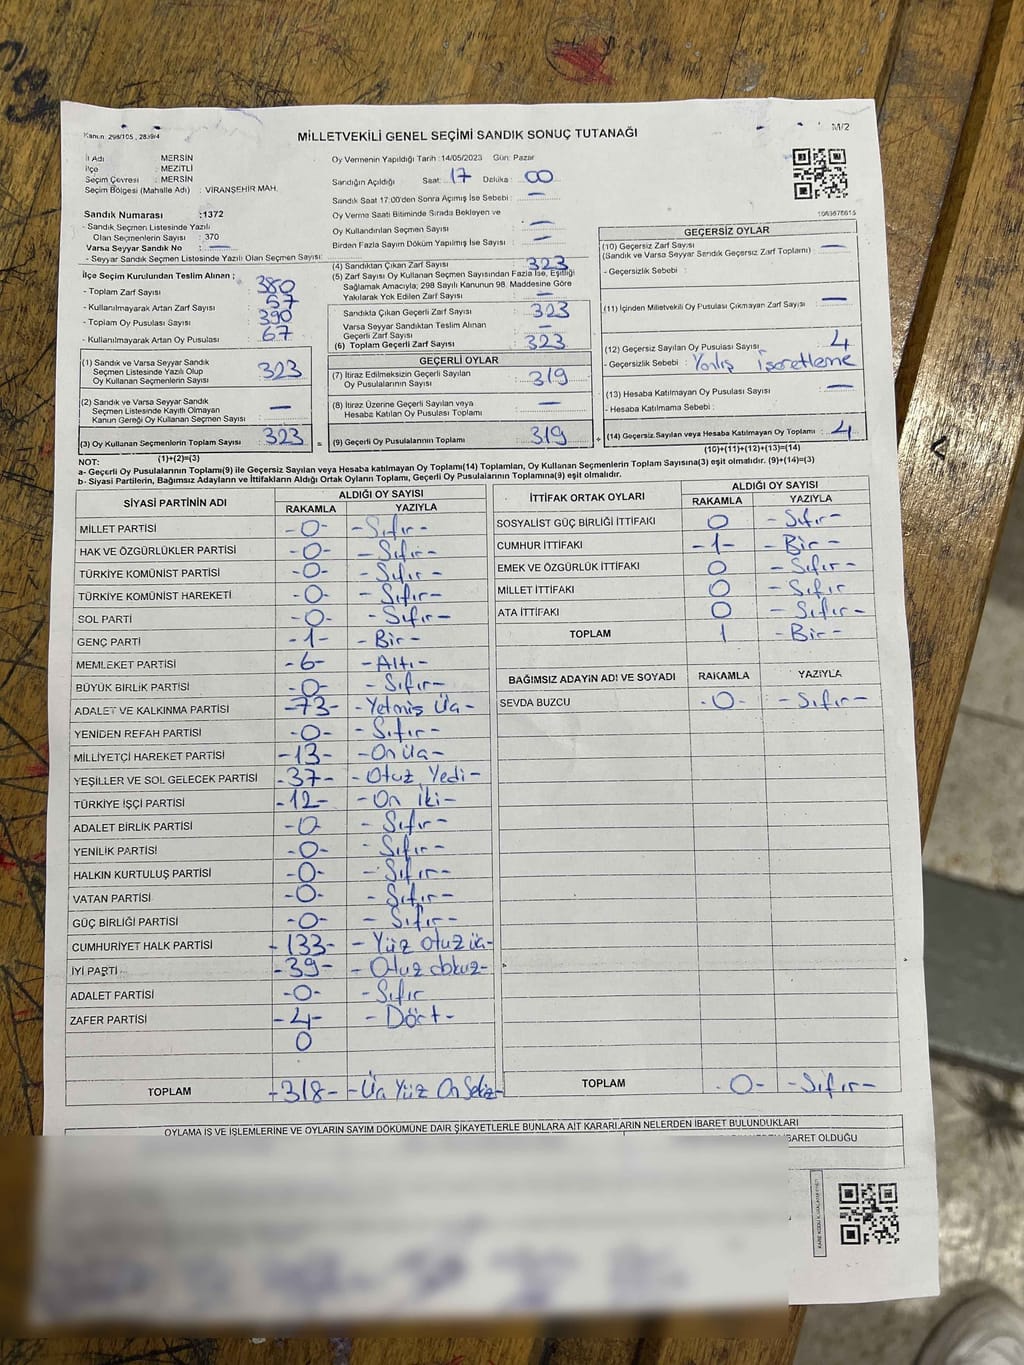 Kanun: 298/105, 2839/4
MİLLETVEKİLİ GENEL SEÇİMİ SANDIK SONUÇ TUTANAĞI
M/2
İl Adı : MERSİN
İlçe : MEZİTLİ
Seçim Çevresi : MERSİN
Seçim Bölgesi (Mahalle Adı) : VİRANŞEHİR MAH.
Sandık Numarası :1372
- Sandık Seçmen Listesinde Yazılı
Olan Seçmenlerin Sayısı : 370
Varsa Seyyar Sandık No : —
- Seyyar Sandık Seçmen Listesinde Yazılı Olan Seçmen Sayısı:
Oy Vermenin Yapıldığı Tarih : 14/05/2023 Gün: Pazar
Sandığın Açıldığı Saat: 17 Dakika : 00
Sandık Saat 17:00'den Sonra Açılmış İse Sebebi : —
Oy Verme Saati Bitiminde Sırada Bekleyen ve
Oy Kullandırılan Seçmen Sayısı : —
Birden Fazla Sayım Döküm Yapılmış İse Sayısı : —
İlçe Seçim Kurulundan Teslim Alınan ;
- Toplam Zarf Sayısı : 380
- Kullanılmayarak Artan Zarf Sayısı : 57
- Toplam Oy Pusulası Sayısı : 390
- Kullanılmayarak Artan Oy Pusulası : 67
(1) Sandık ve Varsa Seyyar Sandık
Seçmen Listesinde Yazılı Olup
Oy Kullanan Seçmenlerin Sayısı : 323
(2) Sandık ve Varsa Seyyar Sandık
Seçmen Listesinde Kayıtlı Olmayan
Kanun Gereği Oy Kullanan Seçmen Sayısı : —
(3) Oy Kullanan Seçmenlerin Toplam Sayısı : 323
(1)+(2)=(3)
(4) Sandıktan Çıkan Zarf Sayısı : 323
(5) Zarf Sayısı Oy Kullanan Seçmen Sayısından Fazla İse, Eşitliği
Sağlamak Amacıyla; 298 Sayılı Kanunun 98. Maddesine Göre
Yakılarak Yok Edilen Zarf Sayısı : —
Sandıkta Çıkan Geçerli Zarf Sayısı : 323
Varsa Seyyar Sandıktan Teslim Alınan
Geçerli Zarf Sayısı : —
(6) Toplam Geçerli Zarf Sayısı : 323
GEÇERLİ OYLAR
(7) İtiraz Edilmeksizin Geçerli Sayılan
Oy Pusulalarının Sayısı : 319
(8) İtiraz Üzerine Geçerli Sayılan veya
Hesaba Katılan Oy Pusulası Toplamı : —
= (9) Geçerli Oy Pusulalarının Toplamı : 319
GEÇERSİZ OYLAR
(10) Geçersiz Zarf Sayısı : —
(Sandık ve Varsa Seyyar Sandık Geçersiz Zarf Toplamı)
- Geçersizlik Sebebi :
(11) İçinden Milletvekili Oy Pusulası Çıkmayan Zarf Sayısı : —
(12) Geçersiz Sayılan Oy Pusulası Sayısı : 4
- Geçersizlik Sebebi : Yanlış işaretleme
(13) Hesaba Katılmayan Oy Pusulası Sayısı : —
- Hesaba Katılmama Sebebi :
+ (14) Geçersiz Sayılan veya Hesaba Katılmayan Oy Toplamı : 4
(10)+(11)+(12)+(13)=(14)
NOT:
a- Geçerli Oy Pusulalarının Toplamı(9) ile Geçersiz Sayılan veya Hesaba katılmayan Oy Toplamı(14) Toplamları, Oy Kullanan Seçmenlerin Toplam Sayısına(3) eşit olmalıdır. (9)+(14)=(3)
b- Siyasi Partilerin, Bağımsız Adayların ve İttifakların Aldığı Ortak Oyların Toplamı, Geçerli Oy Pusulalarının Toplamına(9) eşit olmalıdır.
SİYASİ PARTİNİN ADI ALDIĞI OY SAYISI
RAKAMLA YAZIYLA
MİLLET PARTİSİ -0- -Sıfır-
HAK VE ÖZGÜRLÜKLER PARTİSİ -0- -Sıfır-
TÜRKİYE KOMÜNİST PARTİSİ -0- -Sıfır-
TÜRKİYE KOMÜNİST HAREKETİ -0- -Sıfır-
SOL PARTİ -0- -Sıfır-
GENÇ PARTİ -1- -Bir-
MEMLEKET PARTİSİ -6- -Altı-
BÜYÜK BİRLİK PARTİSİ -0- -Sıfır-
ADALET VE KALKINMA PARTİSİ -73- -Yetmiş Üç-
YENİDEN REFAH PARTİSİ -0- -Sıfır-
MİLLİYETÇİ HAREKET PARTİSİ -13- -On Üç-
YEŞİLLER VE SOL GELECEK PARTİSİ -37- -Otuz Yedi-
TÜRKİYE İŞÇİ PARTİSİ -12- -On iki-
ADALET BİRLİK PARTİSİ -0- -Sıfır-
YENİLİK PARTİSİ -0- -Sıfır-
HALKIN KURTULUŞ PARTİSİ -0- -Sıfır-
VATAN PARTİSİ -0- -Sıfır-
GÜÇ BİRLİĞİ PARTİSİ -0- -Sıfır-
CUMHURİYET HALK PARTİSİ -133- -Yüz otuz üç-
İYİ PARTİ -39- -Otuz dokuz-
ADALET PARTİSİ -0- -Sıfır
ZAFER PARTİSİ -4- -Dört-
0
TOPLAM -318- -Üç Yüz On Sekiz-
İTTİFAK ORTAK OYLARI ALDIĞI OY SAYISI
RAKAMLA YAZIYLA
SOSYALİST GÜÇ BİRLİĞİ İTTİFAKI 0 -Sıfır-
CUMHUR İTTİFAKI -1- -Bir-
EMEK VE ÖZGÜRLÜK İTTİFAKI 0 -Sıfır-
MİLLET İTTİFAKI 0 -Sıfır
ATA İTTİFAKI 0 -Sıfır-
TOPLAM 1 -Bir-
BAĞIMSIZ ADAYIN ADI VE SOYADI RAKAMLA YAZIYLA
SEVDA BUZCU -0- -Sıfır-
TOPLAM -0- -Sıfır-
OYLAMA İŞ VE İŞLEMLERİNE VE OYLARIN SAYIM DÖKÜMÜNE DAİR ŞİKAYETLERLE BUNLARA AİT KARARLARIN NELERDEN İBARET BULUNDUKLARI
İBARET OLDUĞU